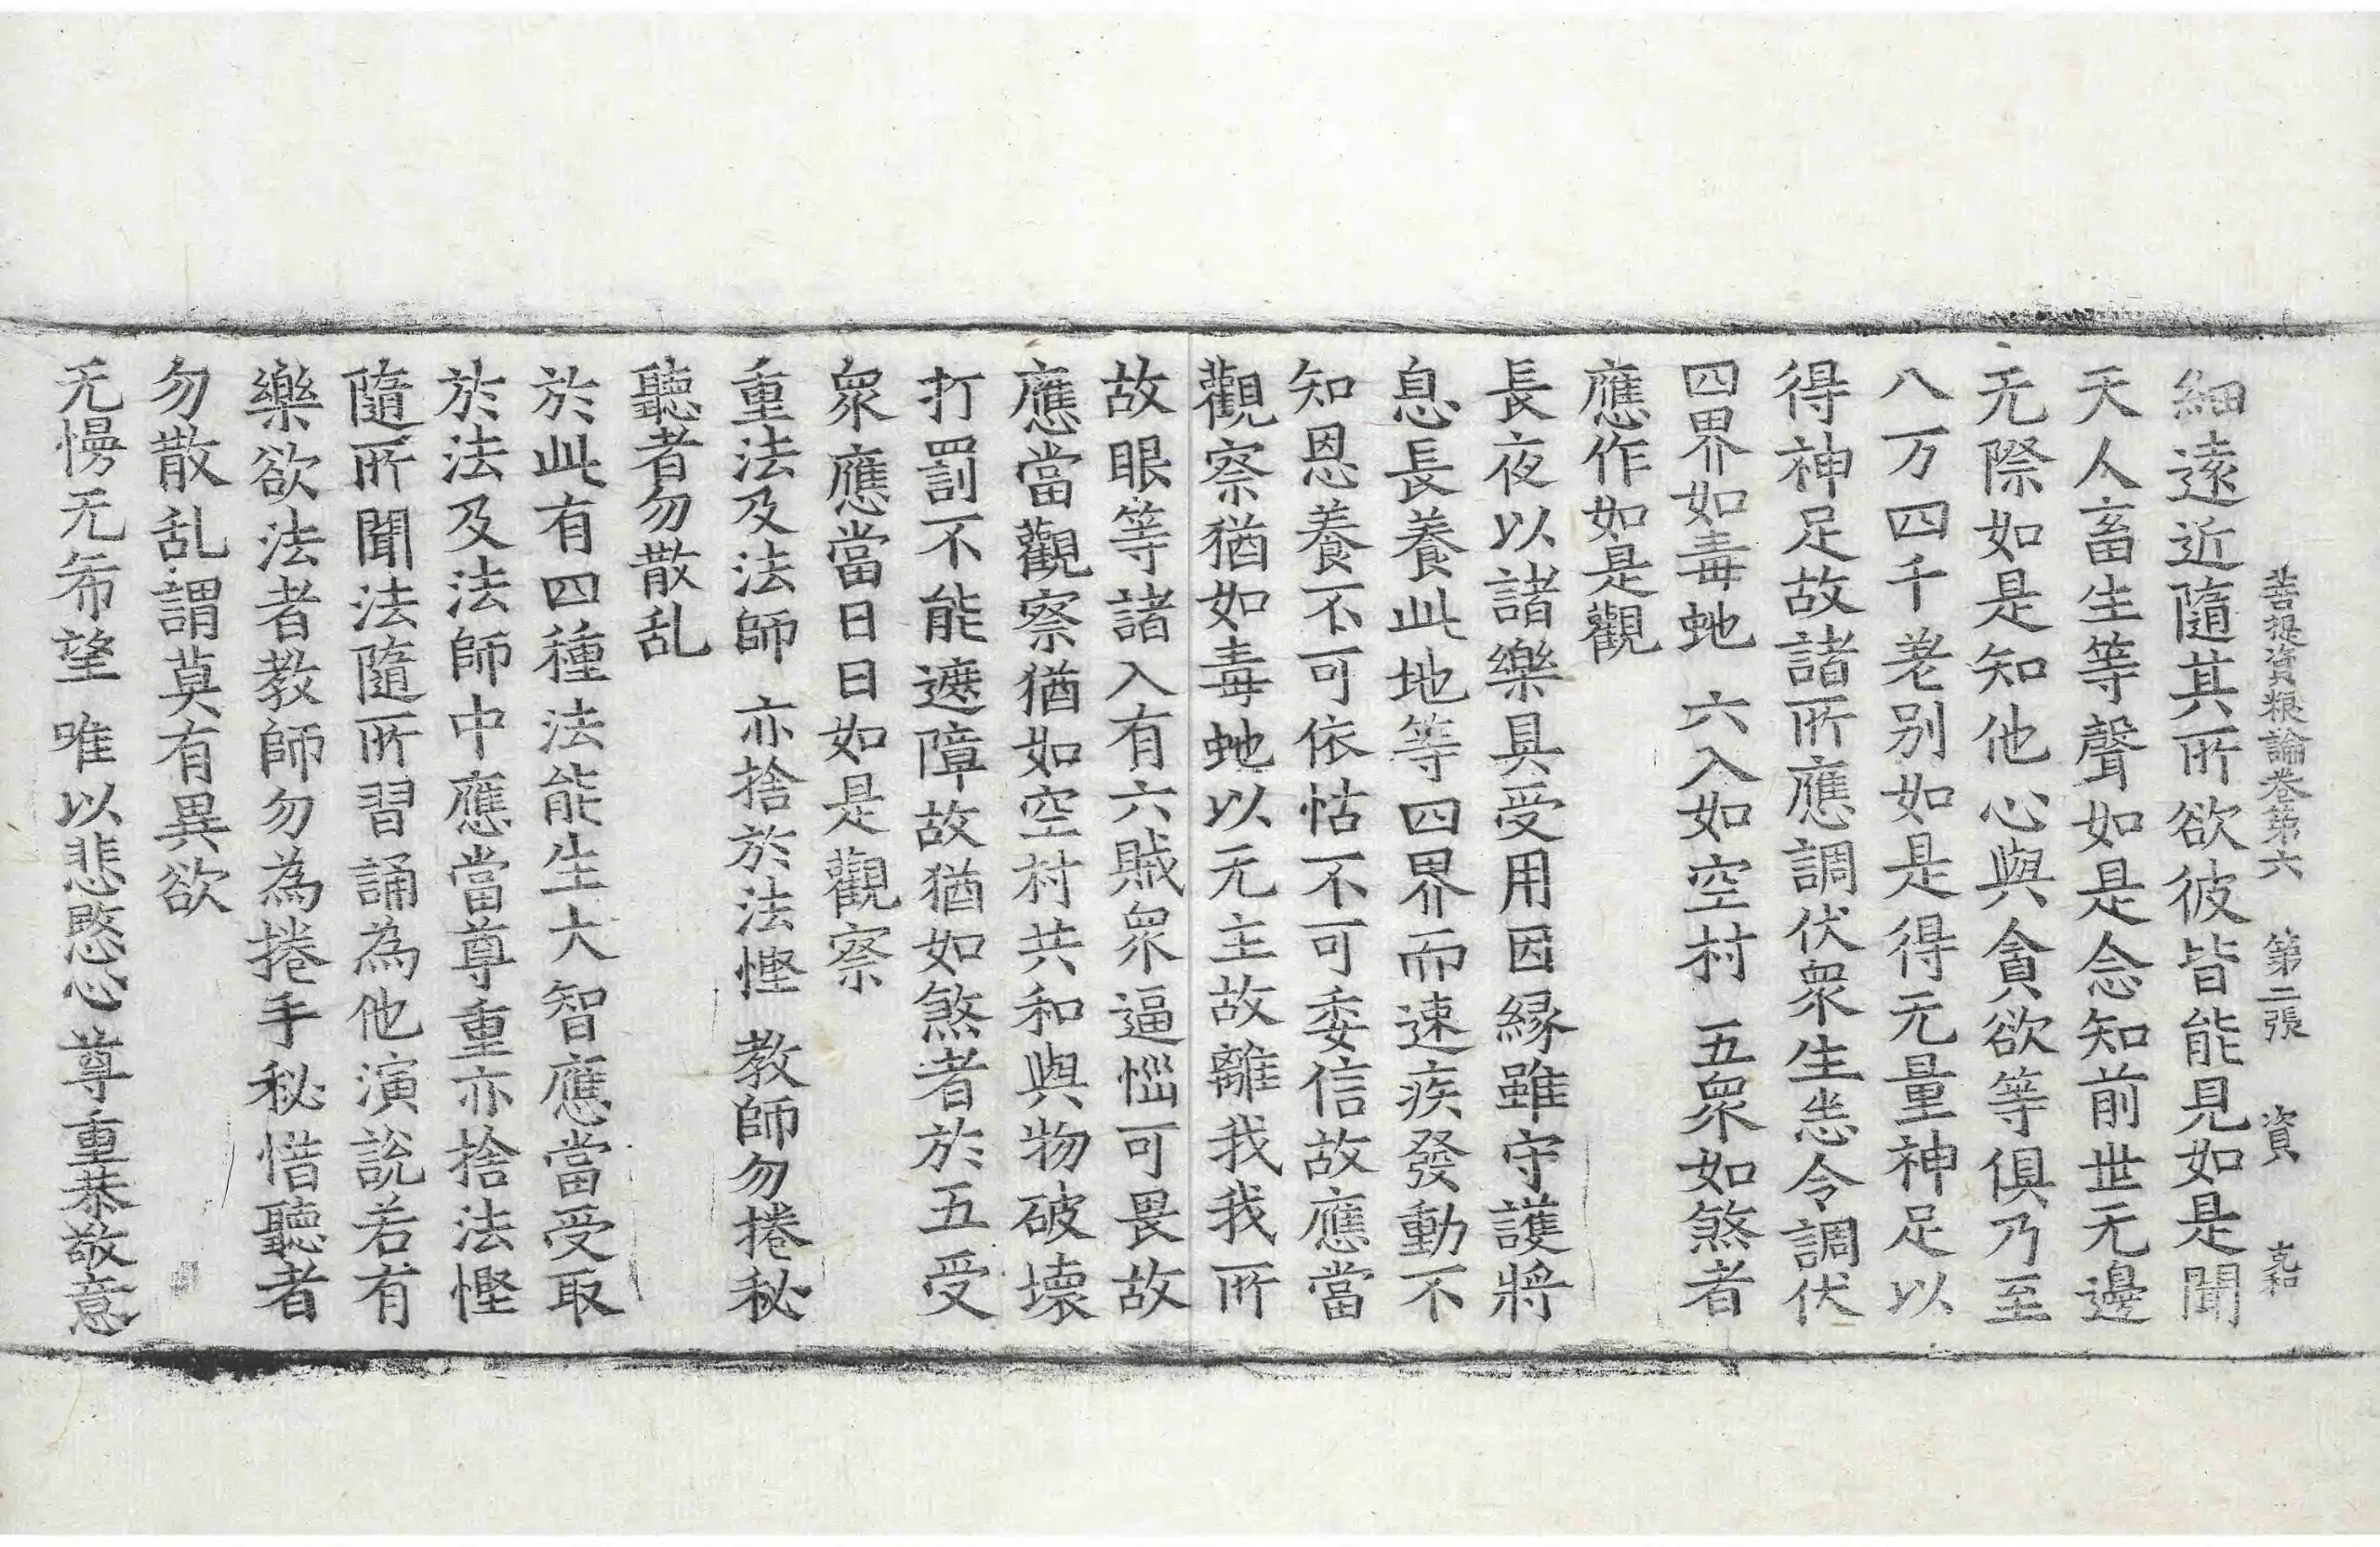 菩提資粮論卷第六　第二張　資　克和
細遠近隨其所欲彼皆能見如是聞
天人畜生等聲如是念知前世无邊
无際如是知他心與貪欲等俱乃至
八万四千差别如是得无量神足以
得神足故諸所應調伏衆生恙令調伏
四界如毒虵　六入如空村　五衆如煞者
應作如是觀
長夜以諸樂具受用因縁雖守護將
息長養此地等四界而速疾發動不
知恩養不可依怙不可委信故應當
觀察猶如毒虵以无主故離我我所
故眼等諸入有六賊衆逼惱可畏故
應當觀察猶如空村共和與物破壊
打罰不能遮障故猶如煞者於五受
衆應當日日如是觀察
重法及法師　亦捨於法慳　教師勿捲秘
聽者勿散乱
於此有四種法能生大智應當受取
於法及法師中應當尊重亦捨法慳
隨所聞法隨所習誦為他演說若有
樂欲法者教師勿為捲手秘惜聽者
勿散乱謂莫有異欲
无慢无希望　唯以悲愍心　尊重恭敬意